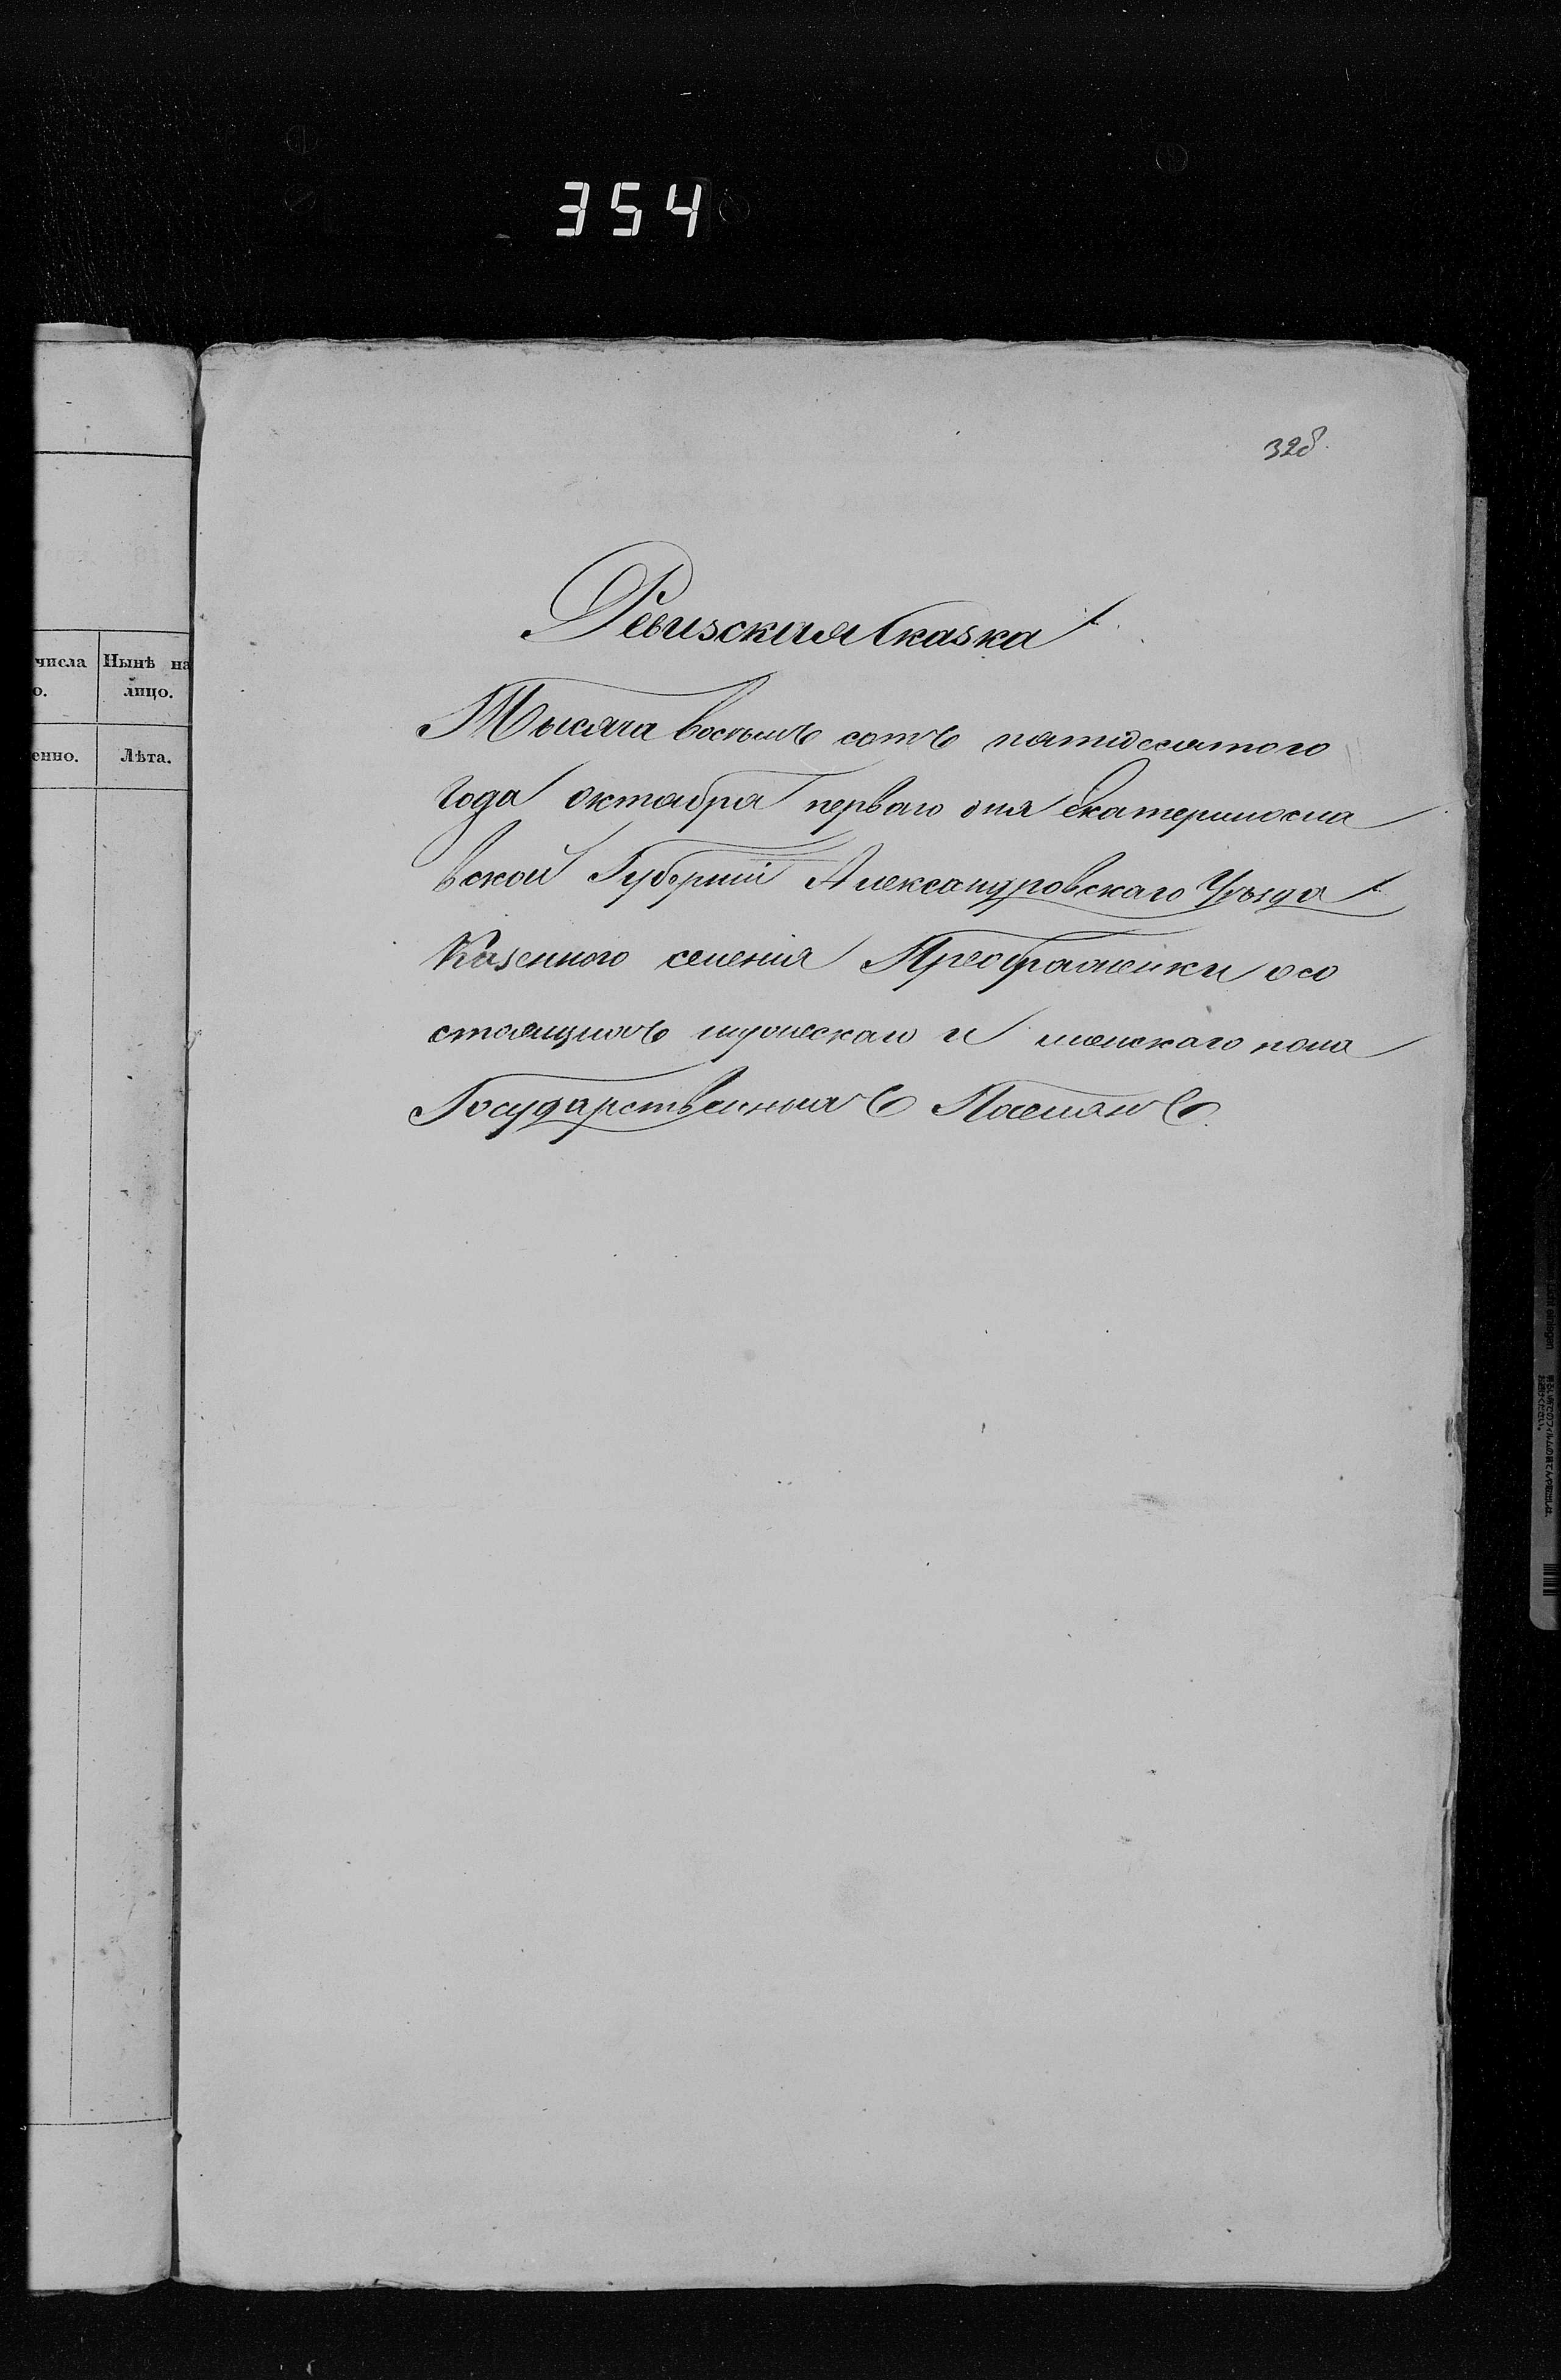 354
328
числа
Нынѣ на
о.
лицо.
енно.
Лѣта.
Ревизская Сказка
Тысяча восьмъ сотъ пятидесятого
Года Октября перваго дня Екатериносла
вской Губернии Александровскаго Уѣзда
Казенного селения Преображенки осо
стоящихъ мужескаго и женскаго пола
Государственныхъ Поселянъ.